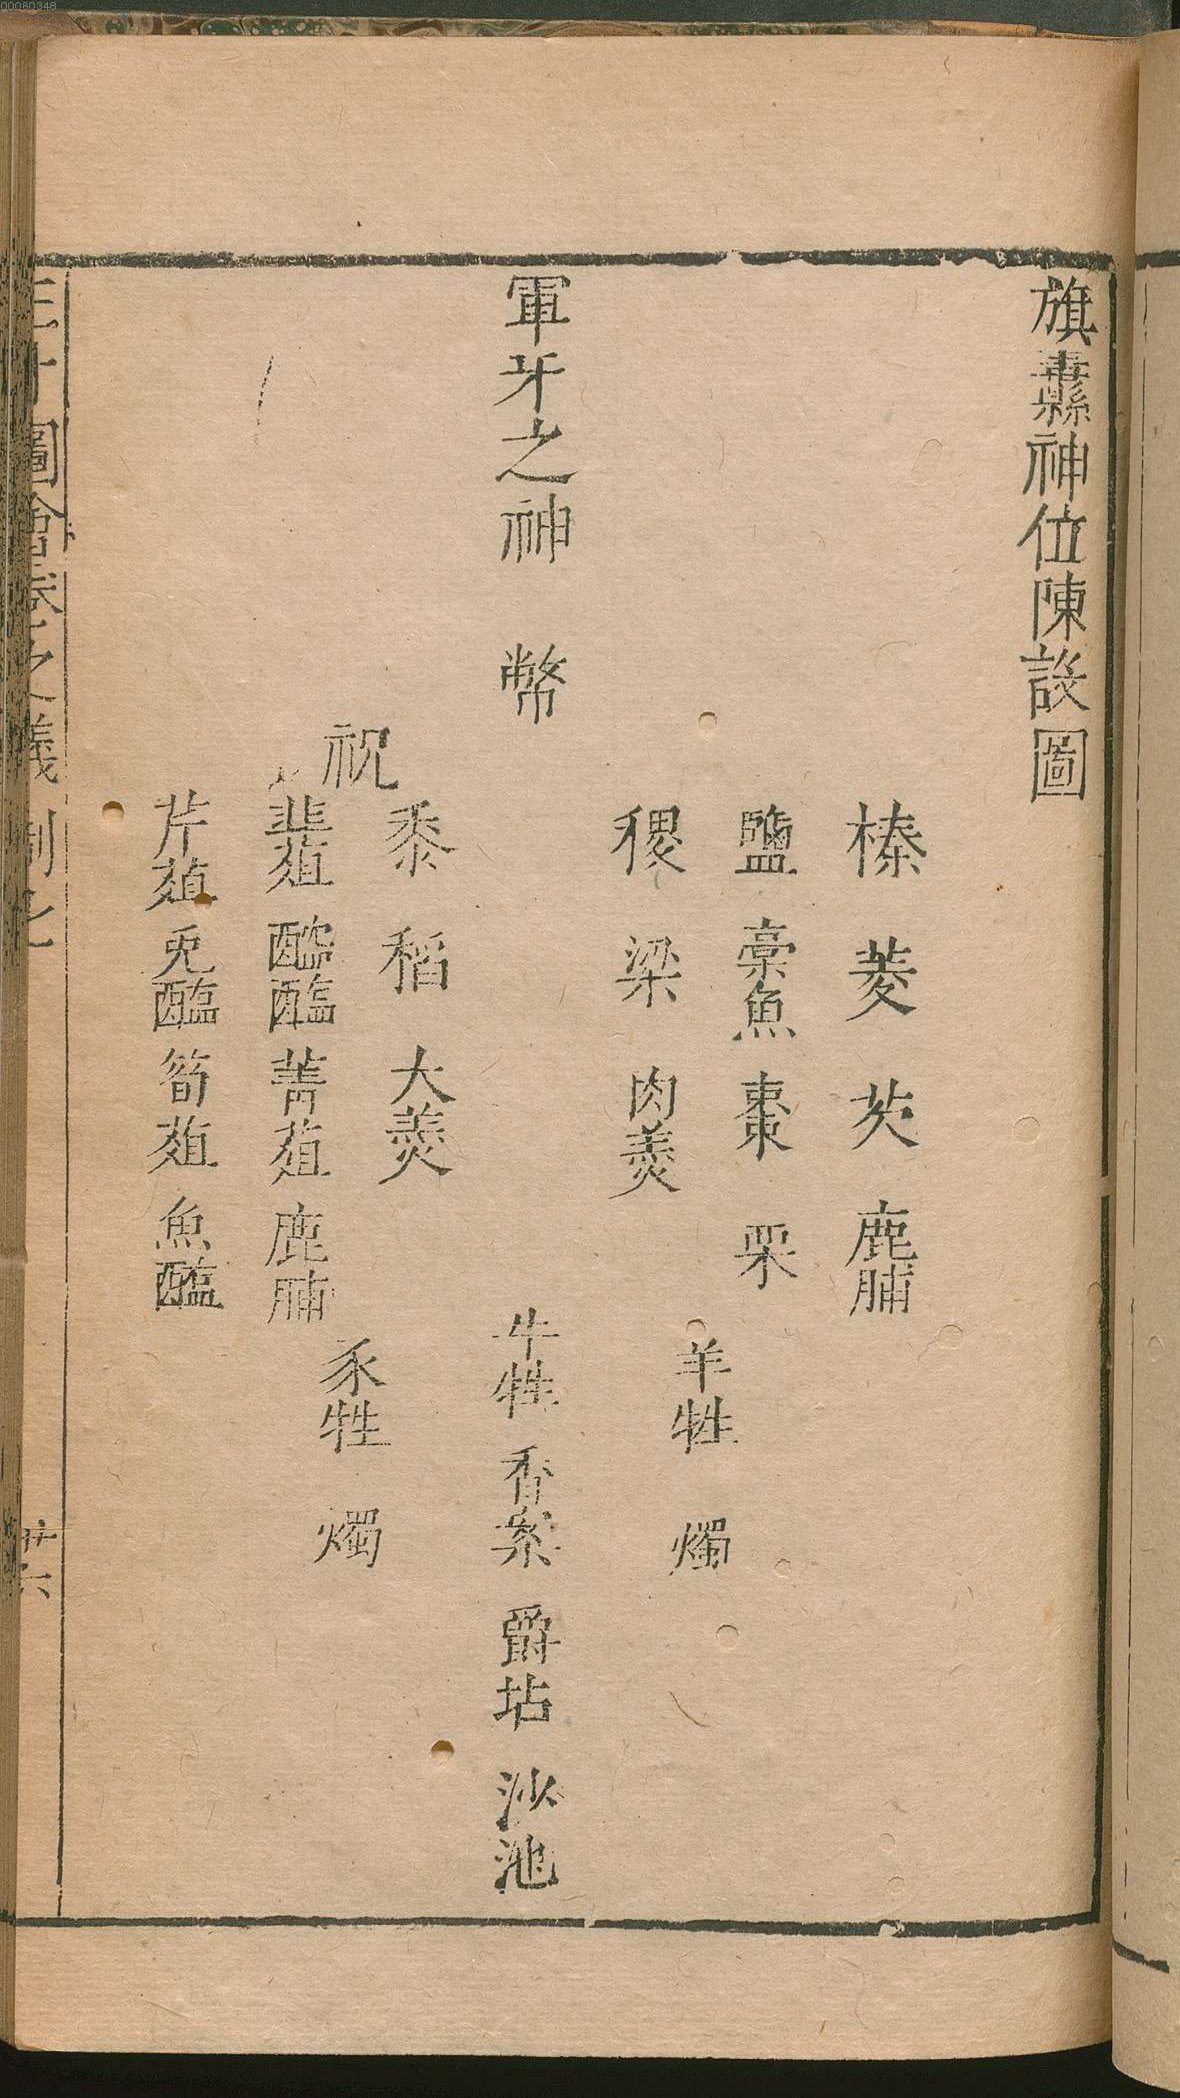 旗纛神位陳設圖
榛 菱 芡 鹿脯
鹽 藁魚 棗 栗
稷 粱 肉羹
羊牲 燭
軍牙之神 幣
牛牲 香案 爵坫 沙池
祝
黍 稻 大羹
豕牲 燭
韭菹 醓醢 菁菹 鹿脯
芹菹 兎醢 筍菹 魚醢
三才圖會卷之 義制七
廿六
00080348